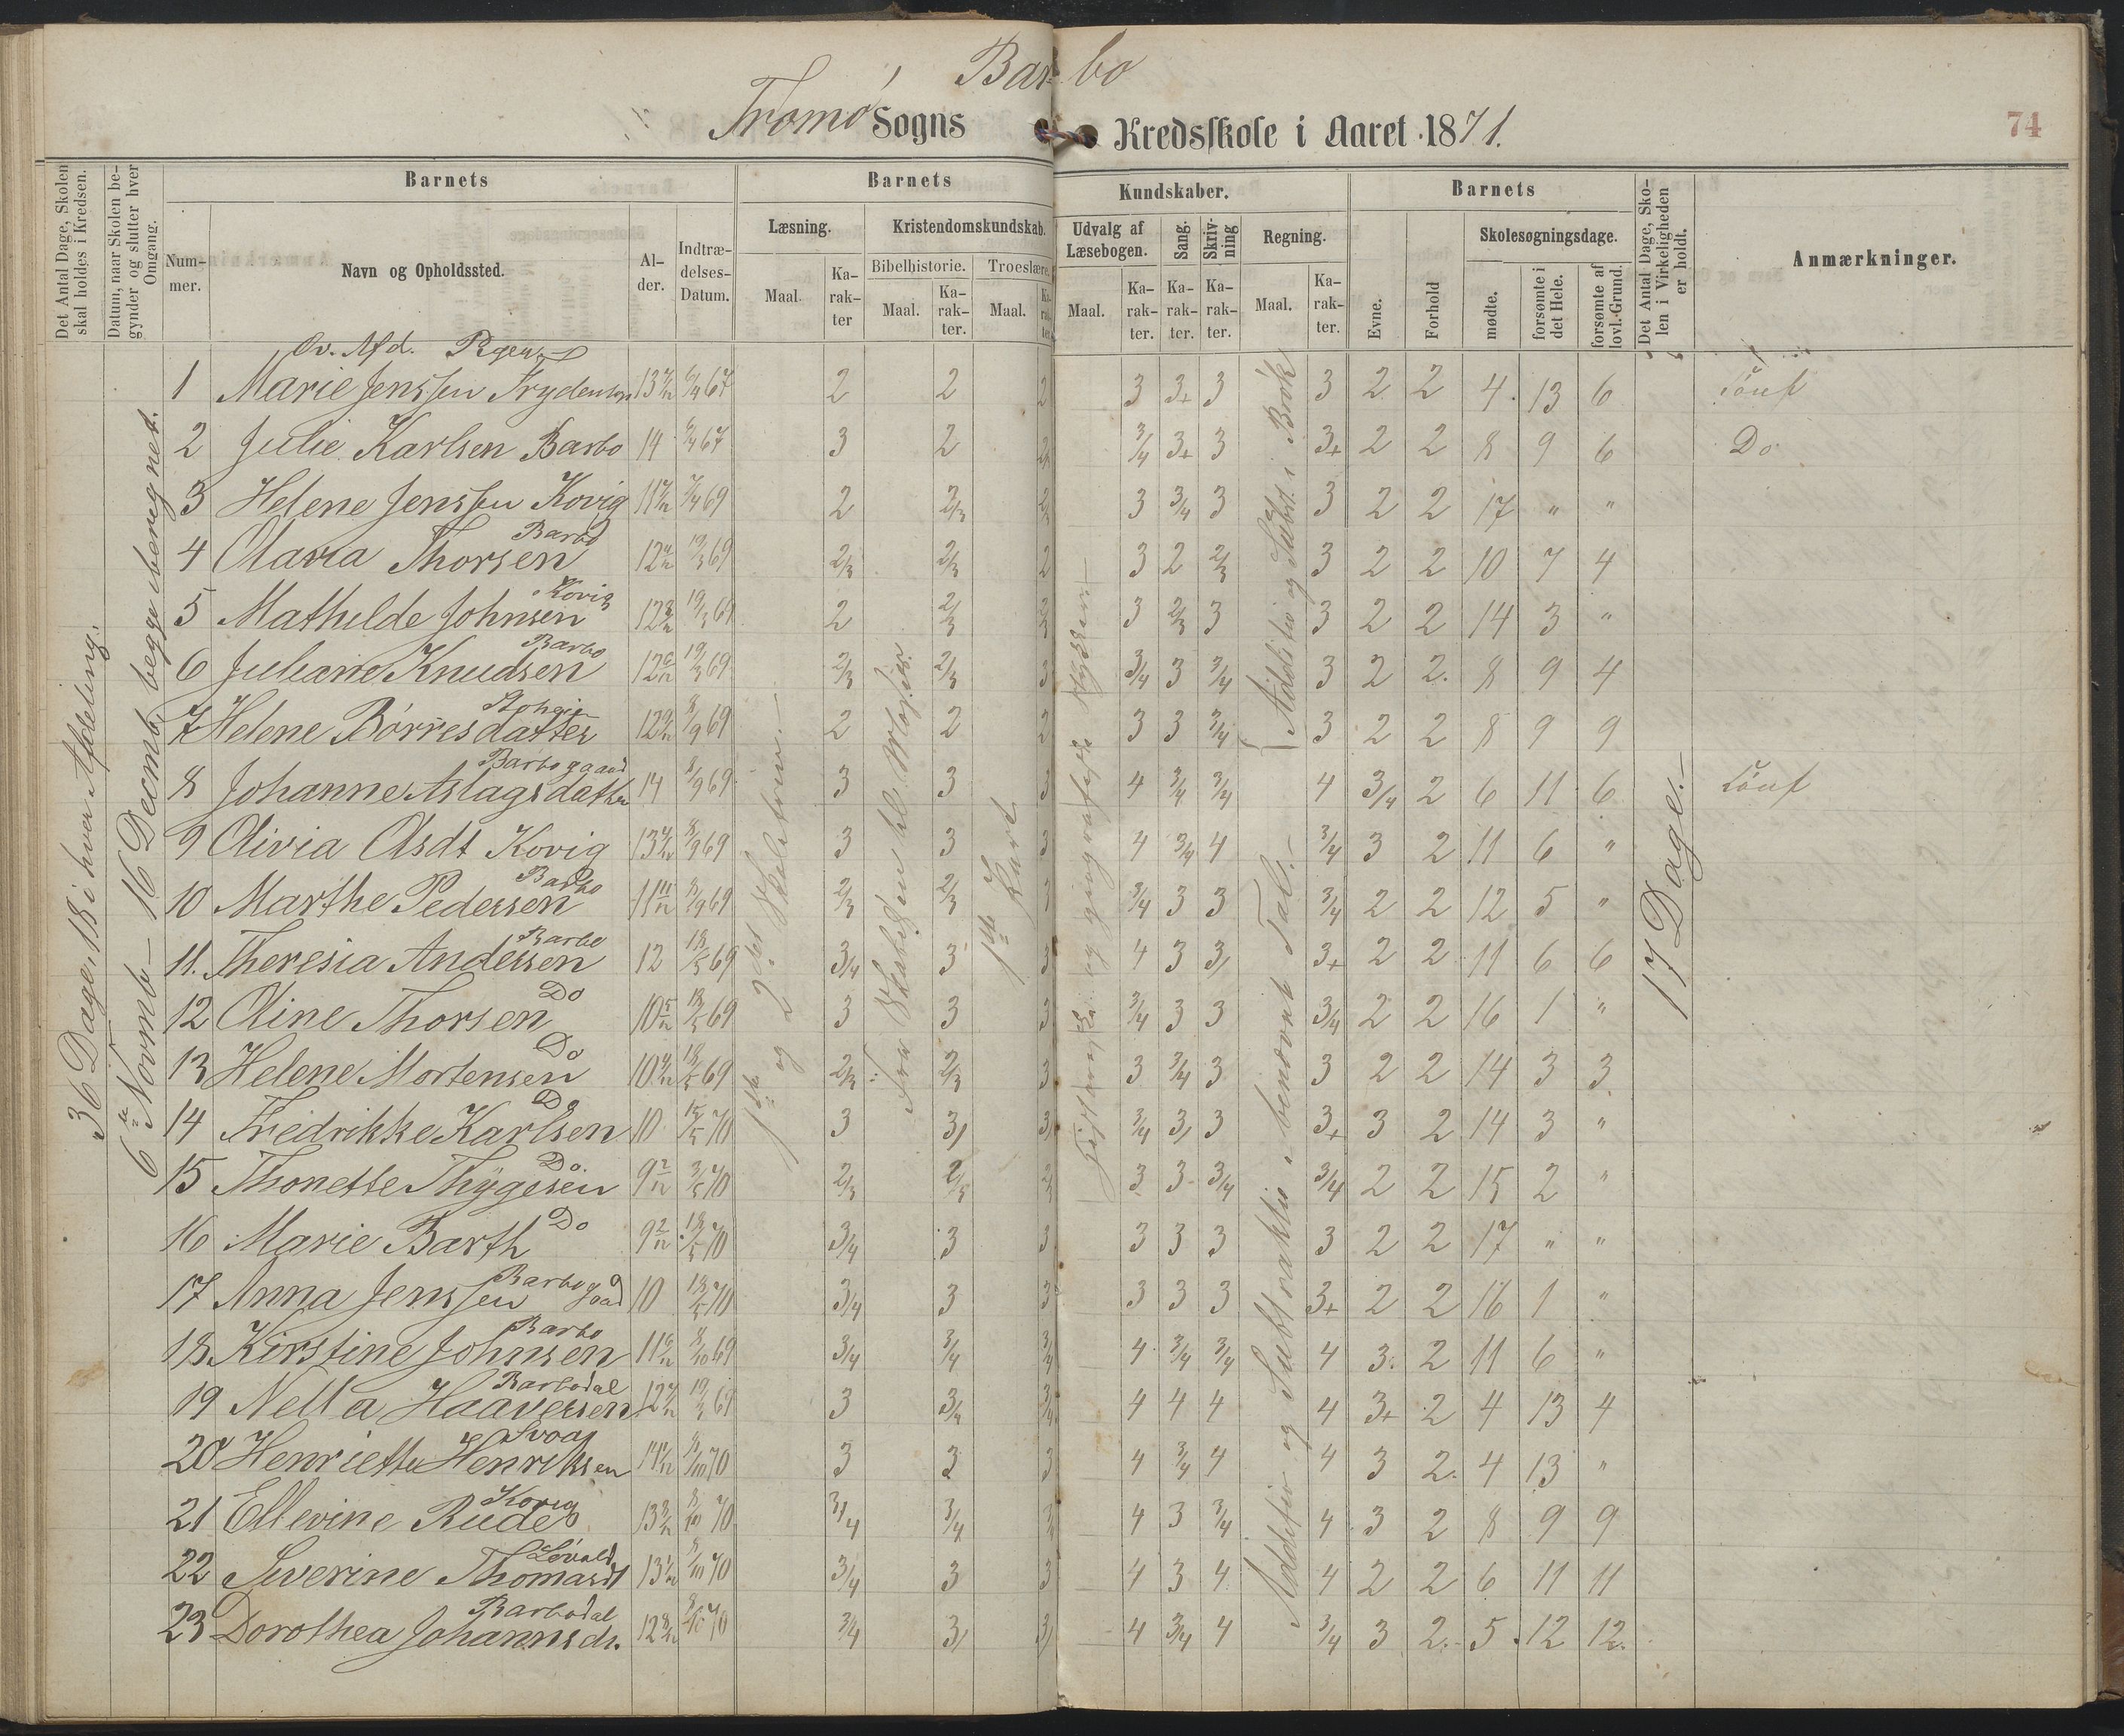 Barbo
Tromø Sogns Kredsskole i Aaret 1871.
74
Det Antal Dage, Skolen skal holdes i Kredsen.
Datum, naar Skolen begynder og slutter hver Omgang.
Barnets
Barnets
Kundskaber.
Barnets
Det Antal Dage, Skolen i Virkeligheden er holdt.
Anmærkninger.
Nummer.
Navn og Opholdssted.
Alder.
Indtrædelses-Datum.
Læsning.
Kristendomskundskab.
Udvalg af Læsebogen.
Sang.
Skrivning
Regning.
Evne.
Forhold
Skolesøgningsdage.
Bibelhistorie.
Troeslære.
Maal.
Karakter
Maal.
Karakter.
Maal.
Karakter.
Maal.
Karakter.
Karakter.
Karakter.
Maal.
Karakter.
mødte.
forsømte i det Hele.
forsømte af lovl. Grund.
36 Dage, 18 i hver Afdeling.
6te Novemb – 16 Decemb, begge beregnet.
1ste og 2det Skoletrin.
1ste Part
Addition og Subtraktion i benævnte Tal.
17 Dage.
Øv. Afd. Piger
1 Marie Jenssen 67 2 2 2 3 3+ 3 3 2 2 4 13 6
2 Julie Karlsen Barbo 14 67 3 2 3/4 3+ 3 3+ 2 2 8 9 6 Do
3 Helene Jenssen Kovig 69 2 2/3 2/3 3 3/4 3 3 2 2 17 " "
4 Olava Thorsen Barbo 19/3 69 2/3 2/3 2 3 2 2/3 3 2 2 10 7 4
5 Mathilde Johnsen Kovig 19/3 69 2 2/3 2/3 3 2/3 3 3 2 2 14 3 "
6 Juliane Knudsen Barbo 19/3 69 2/3 2/3 3 3/4 3 3/4 3 2 2 8 9 4
7 Helene Børresdatter 8/9 69 2 2 2 3 3 3/4 3 2 2 8 9 9
8 Johanne Aslagsdatter Barbogaard 14 8/9 69 3 3 3 4 3/4 3/4 4 3/4 2 6 11 6
9 Olivia Olsdt Kovig 8/9 69 3 3 3 4 3/4 4 3/4 3 2 11 6 "
10 Marthe Pedersen Barbo 11 11/12 8/9 69 2/3 2/3 3 3/4 3 3 3/4 2 2 12 5 "
11. Theresia Andersen Barbo 12 18/5 69 3/4 3 3 4 3 3/ 3+ 2 2 11 6 6
12 Oline Thorsen Do 10 5/12 18/5 69 3 3 3 3/4 3 3 3/4 2 2 16 1 "
13 Helene Mortensen Do 18/5 69 2/3 2/3 3 3 3/4 3 3 2 2 14 3 3
14 Fredrikke Karlsen Do 10 15/5 70 3 3/ 3/ 3/4 3/ 3 3+ 3 2 14 3 "
15 Thonette Thygesen Do. 9 2/12 3/5 70 2/3 2/3 2/3 3 3 3/4 3/4 2 2 15 2 "
16 Marie Barth Do 9 2/12 18/5 70 3/4 3 3 3 3 3 3 2 2 17 " "
17 Anna Jenssen Barbogaad 10 18/5 70 3/4 3 3 3 3 3 3+ 2 2 16 1 "
18. Kirstine Johnsen Barbo 8/10 69 3/4 3/4 3/4 4 3/4 3/4 4 3. 2 11 6 "
19 Nella Haaversen Barbodal 69 3 3/4 3/4 4 4 4 4 3+ 2 4 13 4
20 Henriette Henriksen 8/10 70 3 3 3 4 3/4 4 4 3 2. 4 13 "
21 Ellevine Rude Kovig 8/10 70 3/4 3/4 3/4 4 3 3/4 4 3 2 8 9 9
22 Severine Thomasdt 8/10 70 3/4 3 3 4 3 4 4 2 2 6 11 11
23 Dorothea Johannsdr. Barbodal 8/10 70 3/4 3/ 3/ 4 3/4 4 3/4 3 2. 5 12 12.